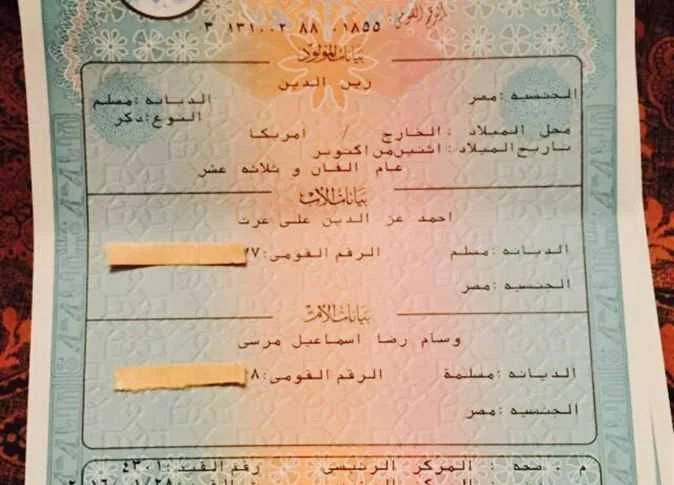 الرقم القومي
٣ ١٣١٠٠٣ ٨٨ ٠١٨٥٥
بيانات المولود
زين الدين
الجنسيه: مصر الديانه: مسلم
النوع: ذكر
محل الميلاد : الخارج / أمريكا
تاريخ الميلاد: اثنين من اكتوبر
عام الفان و ثلاثه عشر
بيانات الأب
احمد عز الدين على عزت
الديانه: مسلم الرقم القومى: ٢٧
الجنسيه: مصر
بيانات الأم
وسام رضا اسماعيل مرسى
الديانه: مسلمة الرقم القومى: ٢٨
الجنسيه: مصر
م . صحه : المركز الرئيسى رقم القيد: ٤٣٠١